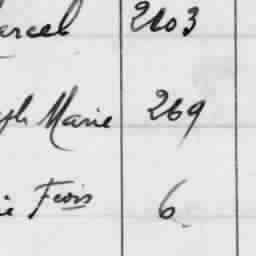 arcel 2103
ph Marie 269
ie Fcois 6